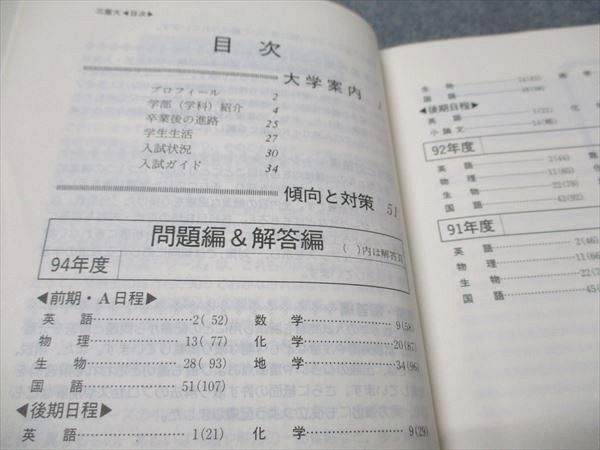 三重大◀目次▶
目次
大学案内 1
プロフィール 2
学部(学科)紹介 4
卒業後の進路 25
学生生活 27
入試状況 30
入試ガイド 34
傾向と対策 51
問題編&解答編
( )内は解答頁
94年度
◀前期・A日程▶
英語…2(52) 数学…9(58)
物理…13(77) 化学…20(87)
生物…28(93) 地学…34(96)
国語…51(107)
◀後期日程▶
英語…1(21) 化学…9(29)
生物
国語
後期日程▶
英語…1(21) 化
小論文
92年度
英語…2(44) 数
物理…11(65)
生物…22(79)
国語…43(92)
91年度
英語…2(46)
物理…11(66
生物…22(7
国語…45(